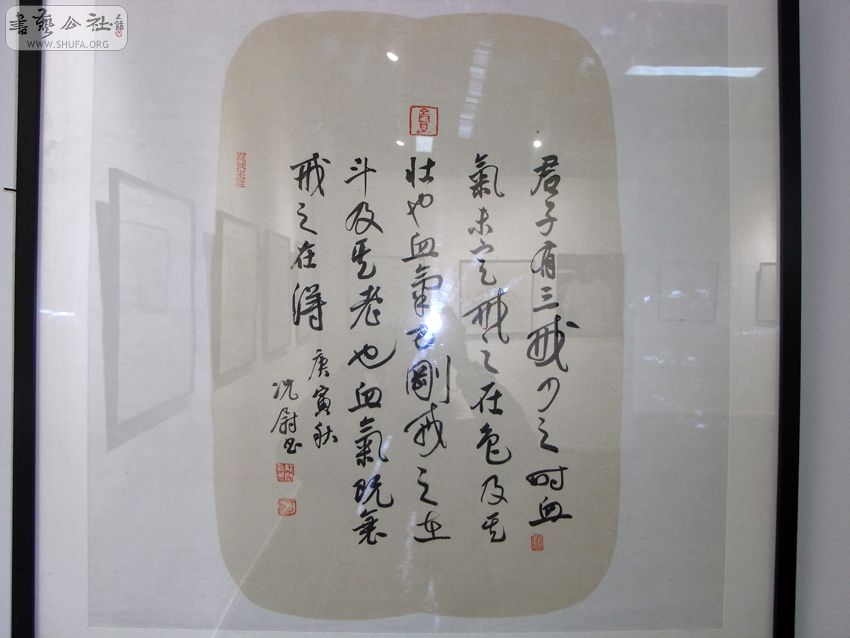 君子有三戒少之时血
氣未定戒之在色及其
壯也血氣方剛戒之在
斗及其老也血氣既衰
戒之在得
庚寅秋
書藝公社
WWW.SHUFA.ORG